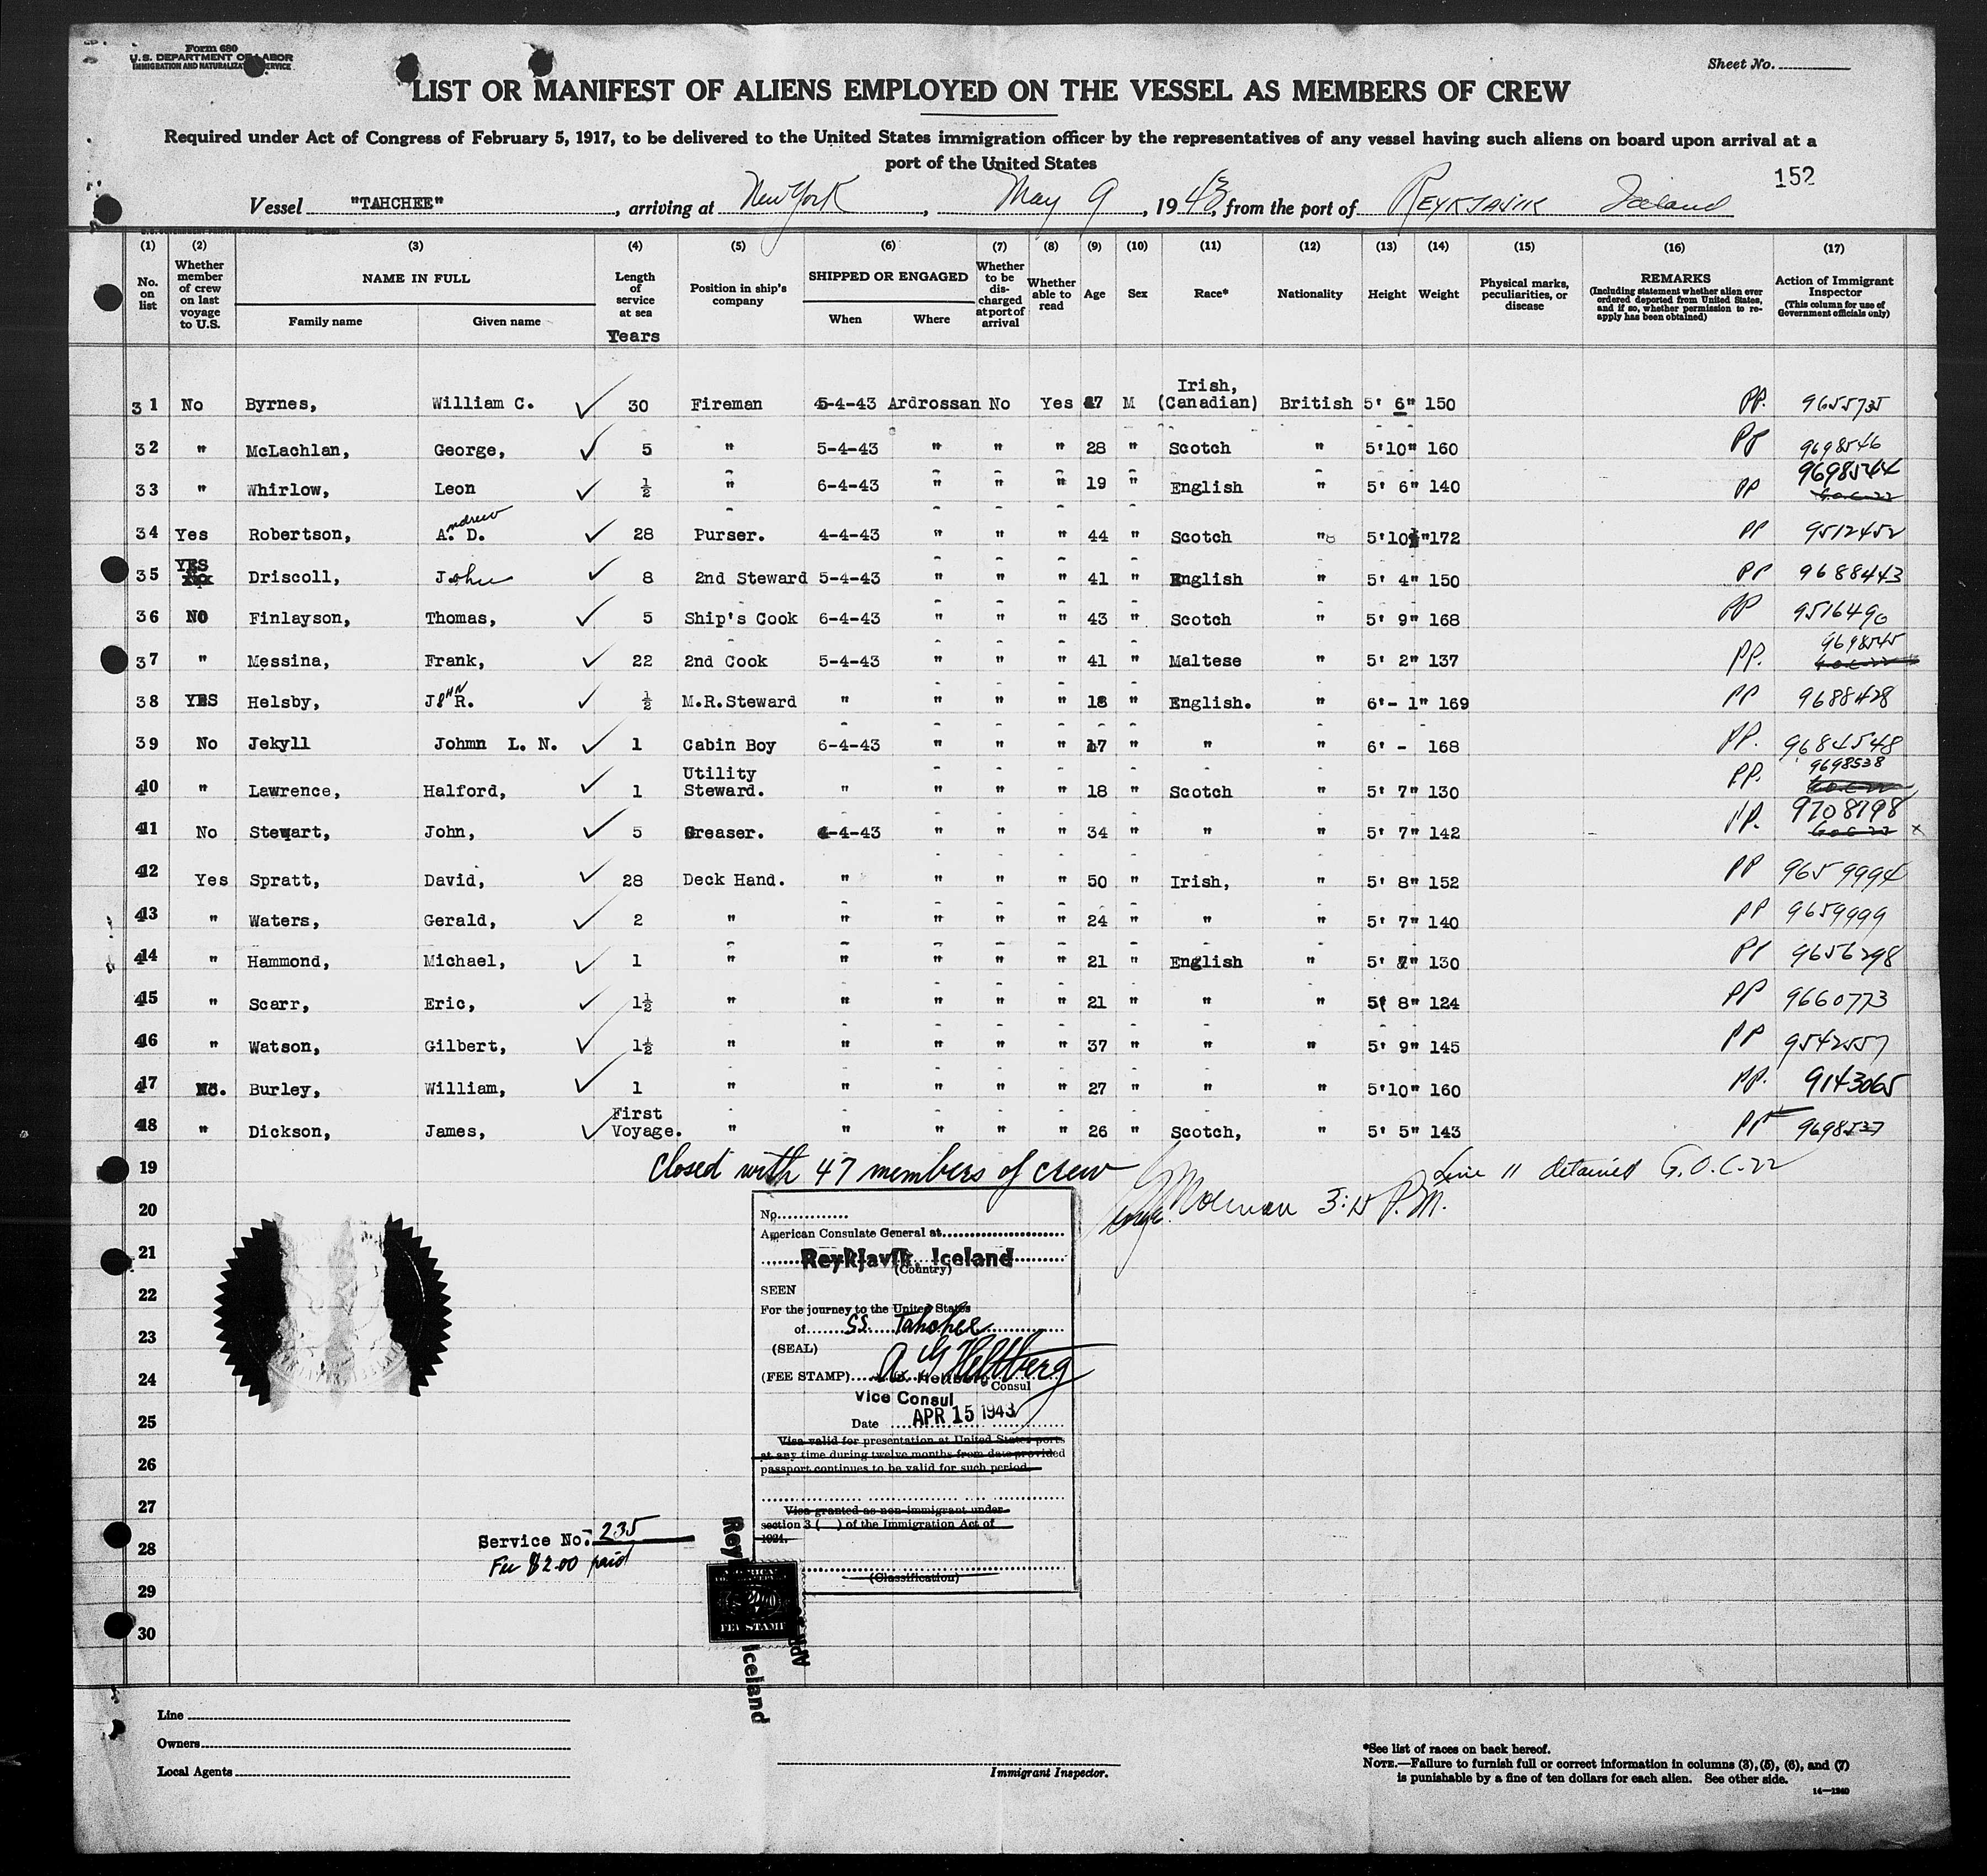 Form 680
U.S. DEPARTMENT OF LABOR
IMMIGRATION AND NATURALIZATION SERVICE
Sheet No.
LIST OR MANIFEST OF ALIENS EMPLOYED ON THE VESSEL AS MEMBERS OF CREW
Required under Act of Congress of February 5, 1917, to be delivered to the United States immigration officer by the representatives of any vessel having such aliens on board upon arrival at a
port of the United States
152
Vessel "TAHCHEE", arriving at New York, May 9, 1943, from the port of REYKJAVIK Iceland
(1) (2) (3) (4) (5) (6) (7) (8) (9) (10) (11) (12) (13) (14) (15) (16) (17)
No. on list
Whether member of crew on last voyage to U.S.
NAME IN FULL
Family name
Given name
Length of service at sea
Years
Position in ship's company
SHIPPED OR ENGAGED
When
Where
Whether to be discharged at port of arrival
Whether able to read
Age
Sex
Race*
Nationality
Height
Weight
Physical marks, peculiarities, or disease
REMARKS
(Including statement whether alien ever ordered deported from United States, and if so, whether permission to reapply has been obtained)
Action of Immigrant Inspector
(This column for use of Government officials only)
31 No Byrnes, William C. 30 Fireman 5-4-43 Ardrossan No Yes 47 M Irish, (Canadian) British 5' 6" 150 PP. 9655735
32 " McLachlan, George, 5 " 5-4-43 " " " 28 " Scotch " 5'10" 160 PP 9698546
33 " Whirlow, Leon ½ " 6-4-43 " " " 19 " English " 5' 6" 140 PP 9698544
34 Yes Robertson, Andrew D. 28 Purser. 4-4-43 " " " 44 " Scotch " 5'10½" 172 PP 9512452
35 YES Driscoll, John 8 2nd Steward 5-4-43 " " " 41 " English " 5' 4" 150 PP 9688443
36 NO Finlayson, Thomas, 5 Ship's Cook 6-4-43 " " " 43 " Scotch " 5' 9" 168 PP 9516490
37 " Messina, Frank, 22 2nd Cook 5-4-43 " " " 41 " Maltese " 5' 2" 137 PP. 9698545
38 YES Helsby, JOHN R. ½ M.R.Steward " " " " 18 " English. " 6'- 1" 169 PP 9688428
39 No Jekyll Johmn L. N. 1 Cabin Boy 6-4-43 " " " 17 " " " 6' - 168 PP. 9684548
40 " Lawrence, Halford, 1 Utility Steward. " " " " 18 " Scotch " 5' 7" 130 PP. 9698538
41 No Stewart, John, 5 Greaser. 4-4-43 " " " 34 " " " 5' 7" 142 PP. 9708798 x
42 Yes Spratt, David, 28 Deck Hand. " " " " 50 " Irish, " 5' 8" 152 PP 9659994
43 " Waters, Gerald, 2 " " " " " 24 " " " 5' 7" 140 PP 9659999
44 " Hammond, Michael, 1 " " " " " 21 " English " 5' 7" 130 PP 9656298
45 " Scarr, Eric, 1½ " " " " " 21 " " " 5' 8" 124 PP 9660773
46 " Watson, Gilbert, 1½ " " " " " 37 " " " 5' 9" 145 PP 9542557
47 No. Burley, William, 1 " " " " " 27 " " " 5'10" 160 PP. 9143065
48 " Dickson, James, First Voyage. " " " " " 26 " Scotch, " 5' 5" 143 PP 9698537
19 closed with 47 members of crew
Line 11 detained G.O.C-22
20 3:15 P.M.
21
22
23
24
25
26
27
28
29
30
No.
American Consulate General at
Reykjavik, Iceland
(Country)
SEEN
For the journey to the United States
of SS. Tahchee
(SEAL)
(FEE STAMP) A G Heltberg
Consul
Vice Consul
Date APR 15 1943
Visa valid for presentation at United States ports
at any time during twelve months from date provided
passport continues to be valid for such period.
Visa granted as non-immigrant under
section 3 ( ) of the Immigration Act of
1924.
(Classification)
Service No. 235
Fee $2.00 paid
FEE STAMP
Iceland
Line
Owners
Local Agents
Immigrant Inspector.
*See list of races on back hereof.
NOTE.—Failure to furnish full or correct information in columns (3), (5), (6), and (7)
is punishable by a fine of ten dollars for each alien. See other side.
14—1240